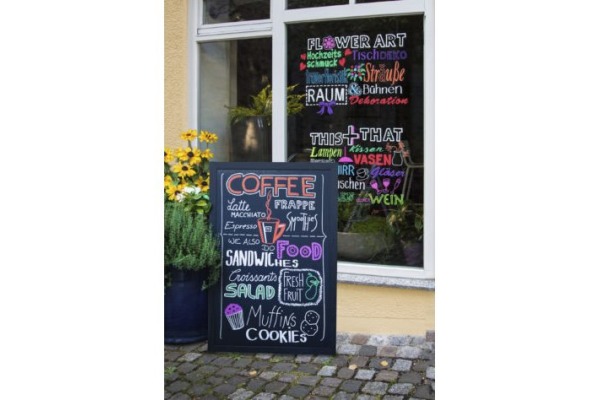 FLOWER ART
Hochzeits
schmuck
TischDEKO
Sträuße
RAUM
& Bühnen
Dekoration
THIS + THAT
Lampen
Kissen
VASEN
Gläser
WEIN
COFFEE
Latte
MACCHIATO
FRAPPE
Espresso
Smoothies
WE ALSO DO
FOOD
SANDWICHES
Croissants
SALAD
FRESH
FRUIT
Muffins
COOKIES